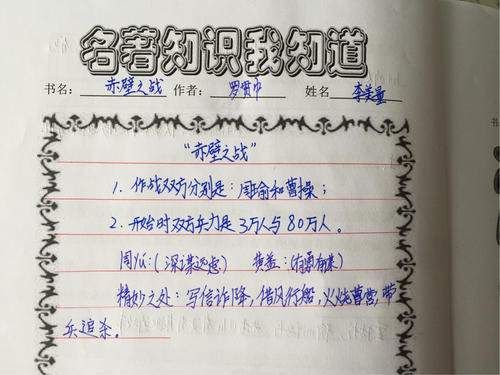 名著知识我知道
书名: 赤壁之战 作者: 罗贯中 姓名 李美童
“赤壁之战”
1. 作战双方分别是: 周瑜和曹操;
2. 开始时双方兵力是3万人与80万人。
周瑜:(深谋远虑) 黄盖:(有勇有谋)
精妙之处: 写信诈降, 借风行船, 火烧曹营, 带
兵追杀。